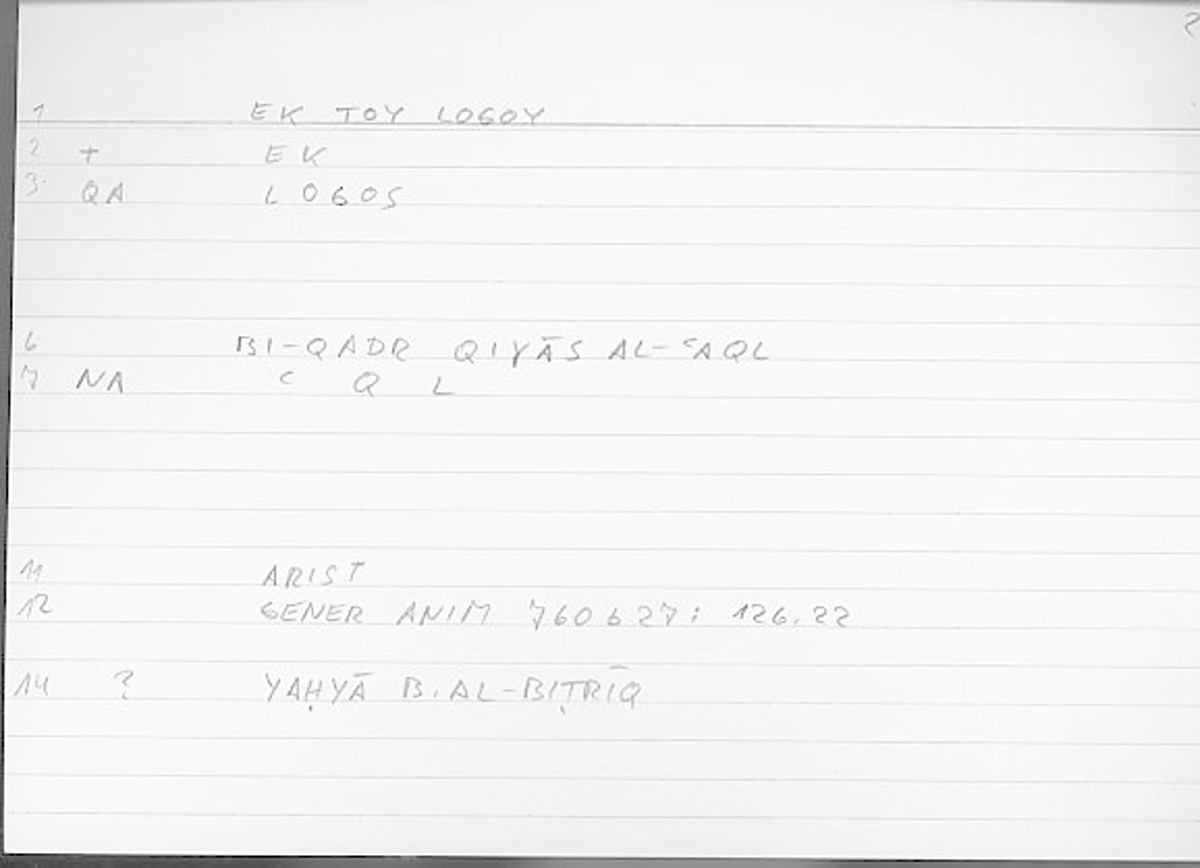 2
1 EK TOY LOGOY
2 + EK
3 QA LOGOS
6 BI-QADR QIYĀS AL-ʿAQL
7 NA ʿ Q L
11 ARIST
12 GENER ANIM 760 b 27; 126.22
14 ? YAḤYĀ B. AL-BIṬRĪQ